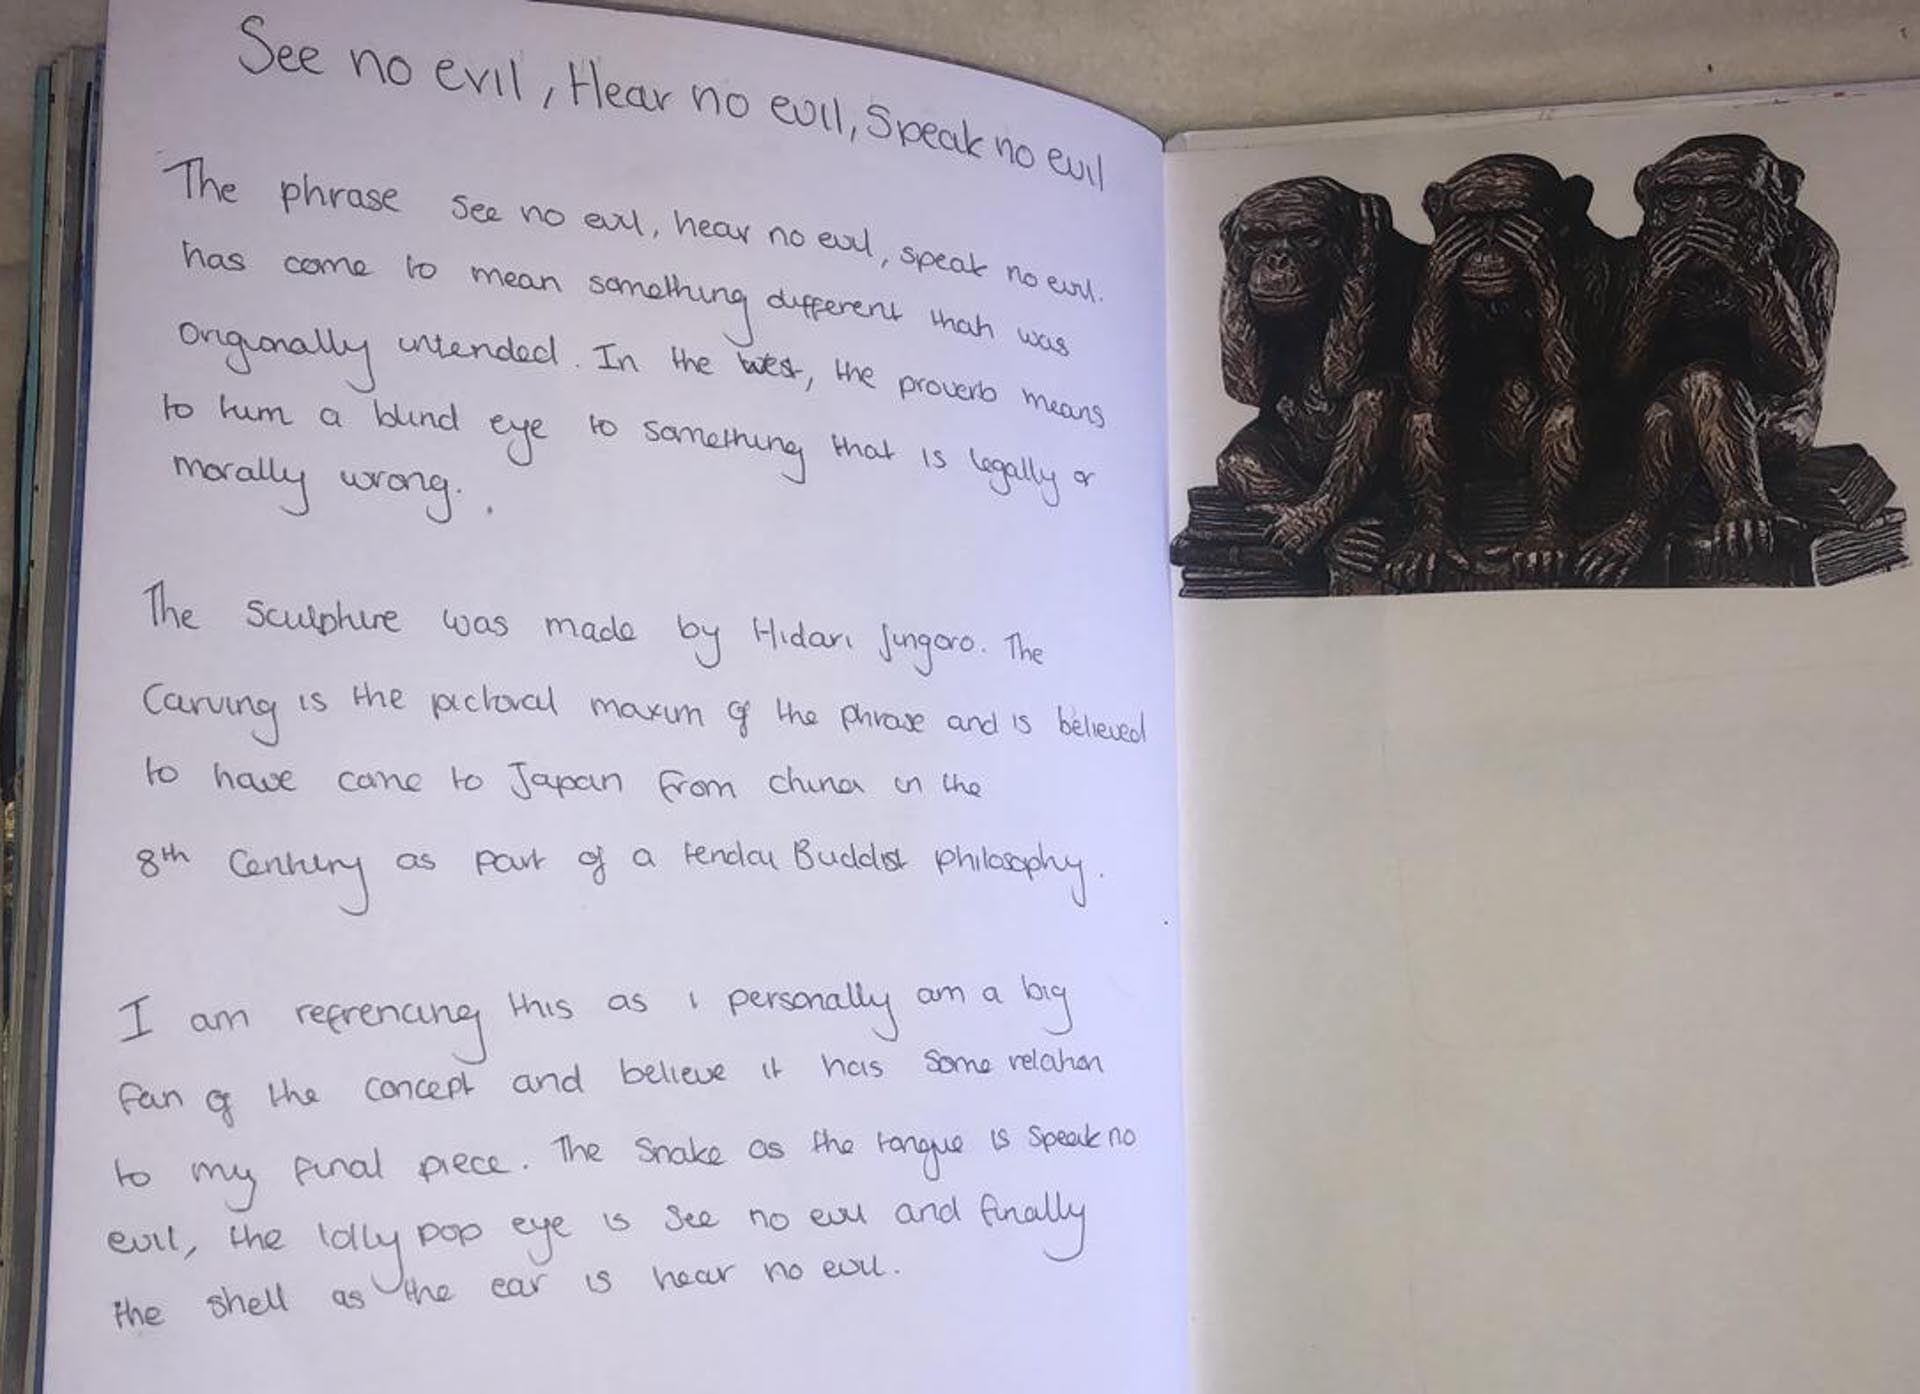 See no evil, Hear no evil, Speak no evil
The phrase see no evil, hear no evil, speak no evil.
has come to mean something different than was
originally intended. In the west, the proverb means
to turn a blind eye to something that is legally or
morally wrong.
The sculpture was made by Hidari Jingoro. The
Carving is the pictoral maxim of the phrase and is believed
to have came to Japan from china in the
8th Century as part of a tendai Buddist philosophy.
I am refrencing this as i personally am a big
fan of the concept and believe it has some relation
to my final piece. The Snake as the tongue is speak no
evil, the lolly pop eye is see no evil and finally
the shell as the ear is hear no evil.